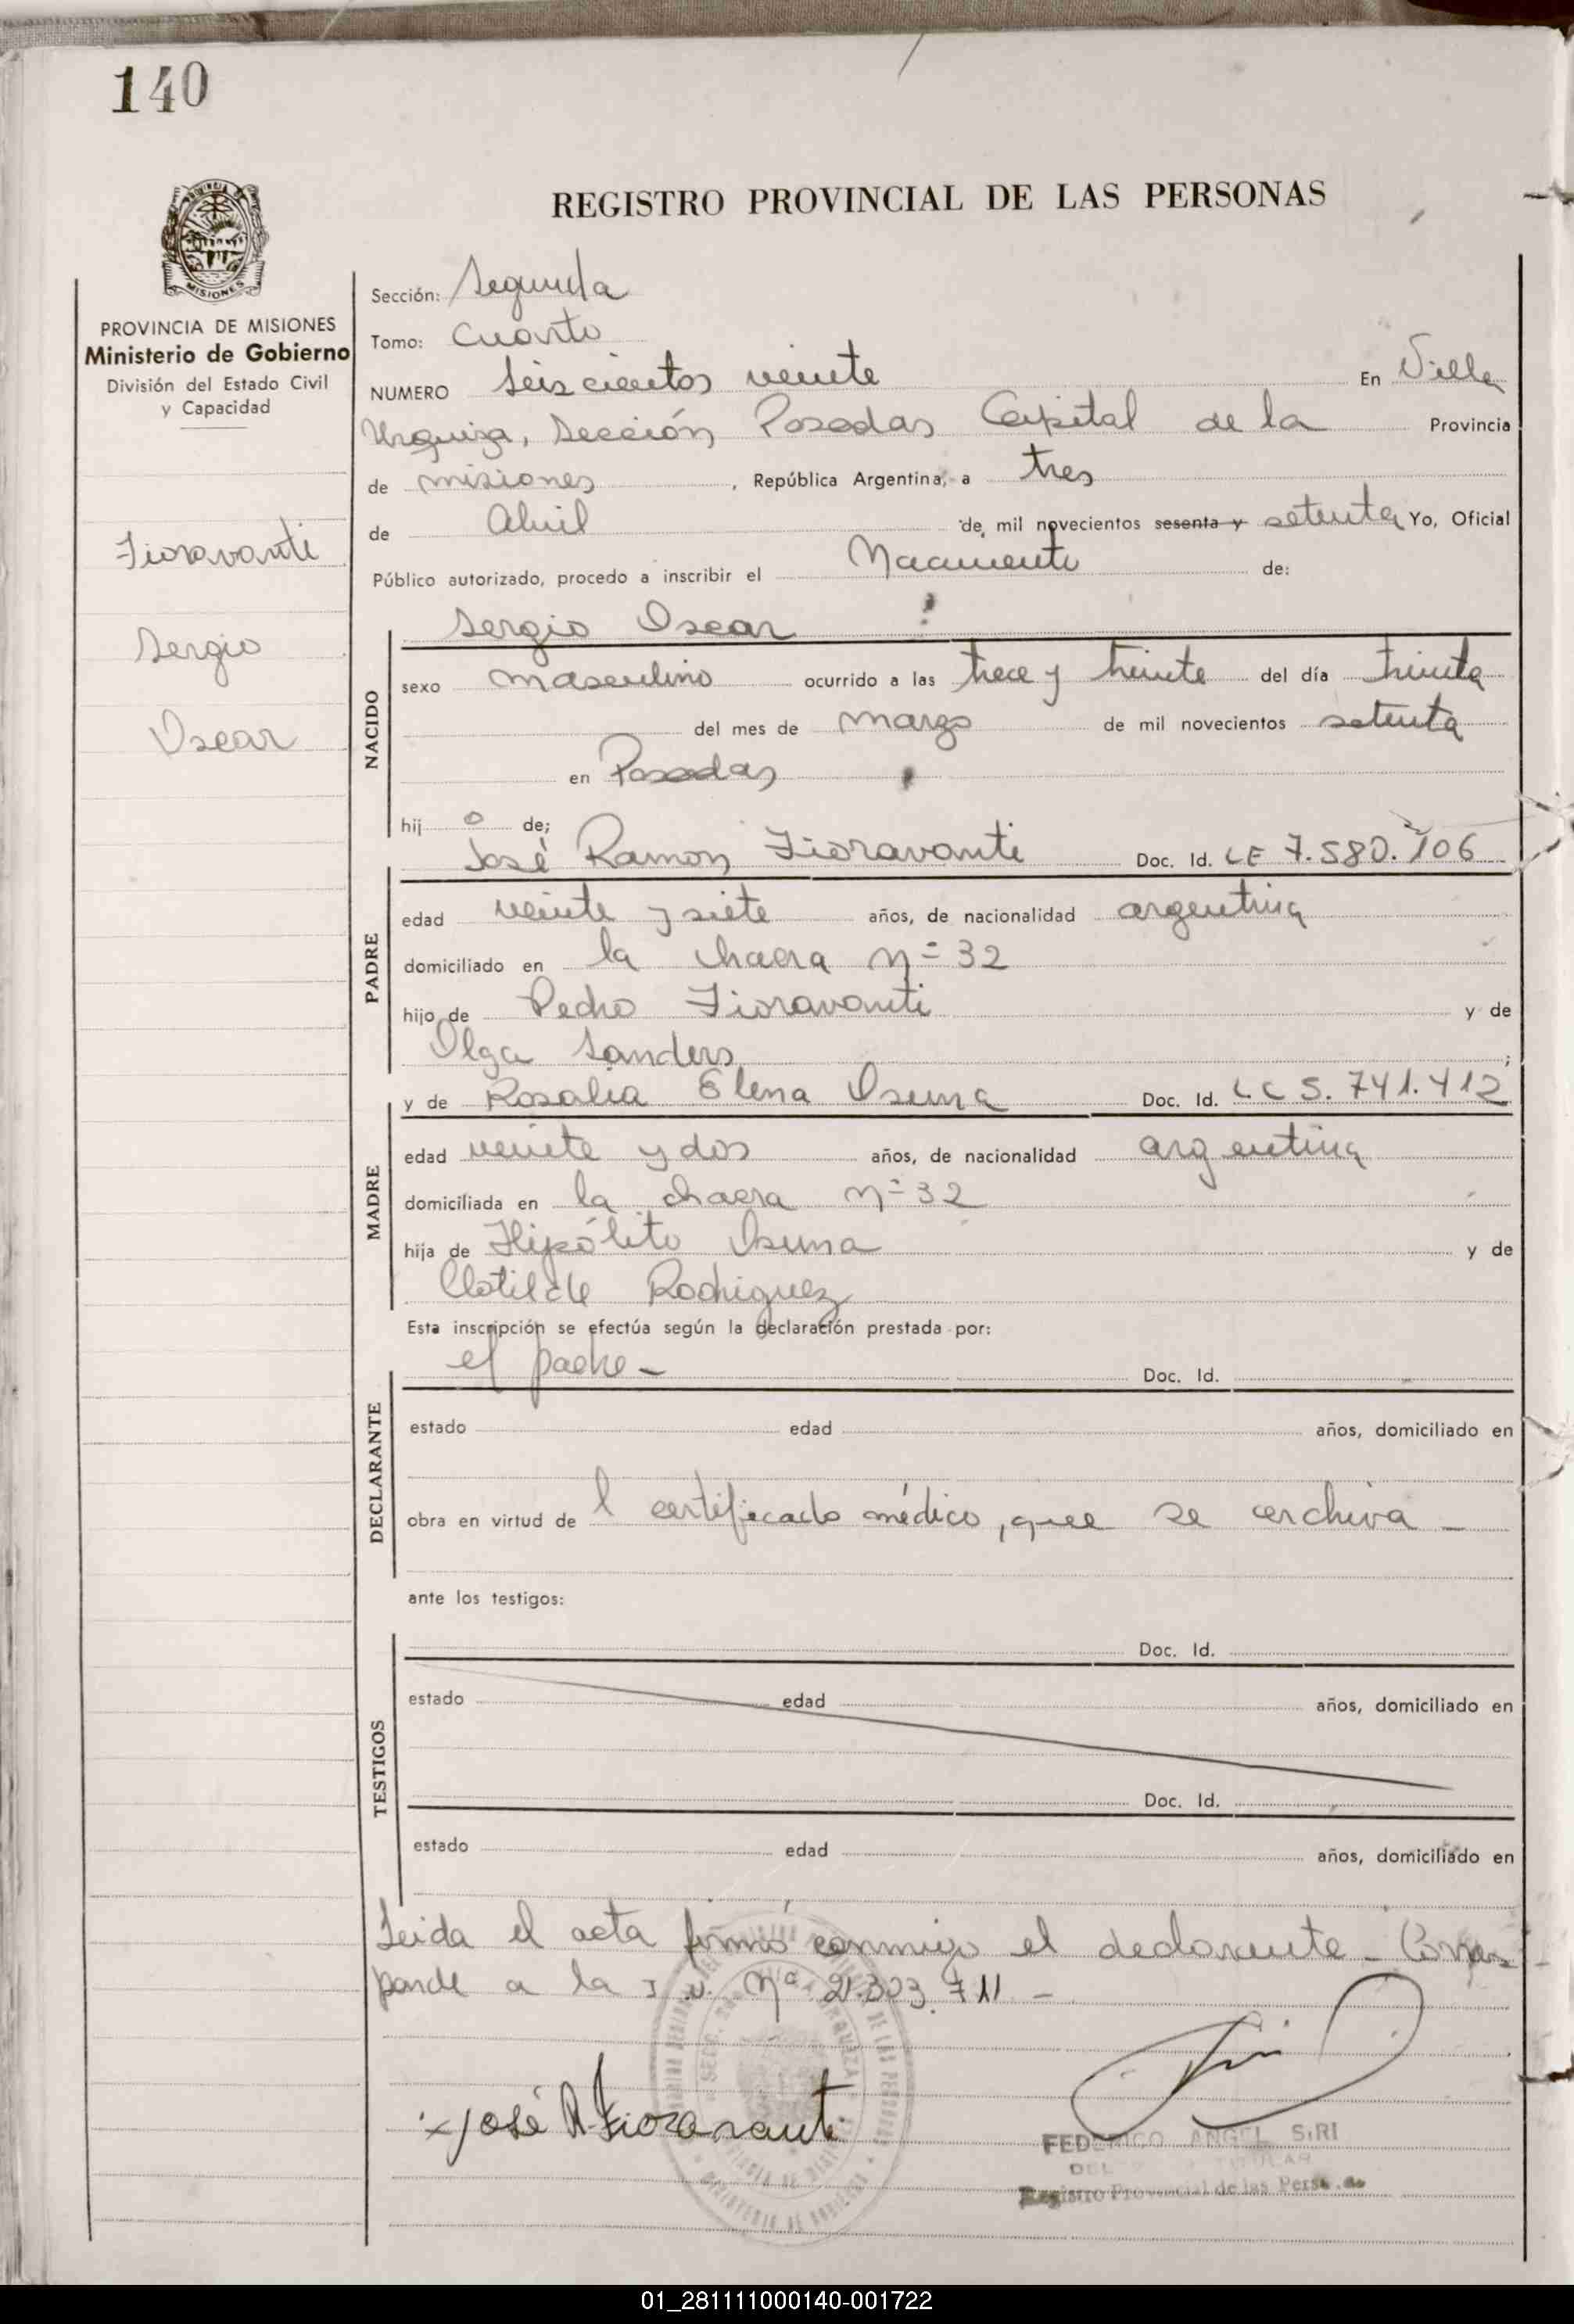 140
REGISTRO PROVINCIAL DE LAS PERSONAS
MISIONES
PROVINCIA DE MISIONES
Ministerio de Gobierno
División del Estado Civil
y Capacidad
Fioravanti
Sergio
Oscar
Sección: Segunda
Tomo: Cuarto
NUMERO Seiscientos veinte En Villa
Urquiza, Sección Posadas Capital de la Provincia
de misiones, República Argentina, a tres
de Abril de mil novecientos sesenta y setenta Yo, Oficial
Público autorizado, procedo a inscribir el Nacimiento de:
Sergio Oscar
NACIDO
sexo masculino ocurrido a las trece y treinta del día treinta
del mes de marzo de mil novecientos setenta
en Posadas
hij o de;
José Ramon Fioravanti Doc. Id. LE 7.580.106
PADRE
edad veinte y siete años, de nacionalidad argentina
domiciliado en la chacra nº 32
hijo de Pedro Fioravanti y de
Olga Sanders;
y de Rosalia Elena Osuna Doc. Id. LC 5.741.412
MADRE
edad veinte y dos años, de nacionalidad argentina
domiciliada en la chacra nº 32
hija de Hipólito Osuna y de
Clotilde Rodriguez
Esta inscripción se efectúa según la declaración prestada por:
el padre - Doc. Id.
DECLARANTE
estado edad años, domiciliado en
obra en virtud de l certificado médico, que se archiva -
ante los testigos:
Doc. Id.
TESTIGOS
estado edad años, domiciliado en
Doc. Id.
estado edad años, domiciliado en
Leida el acta firmó conmigo el declarante - Corres
ponde a la I.U. Nº 21.303.711 -
José R. Fioravanti
FEDERICO ANGEL SIRI
TITULAR
Registro Provincial de las Pers
01_281111000140-001722